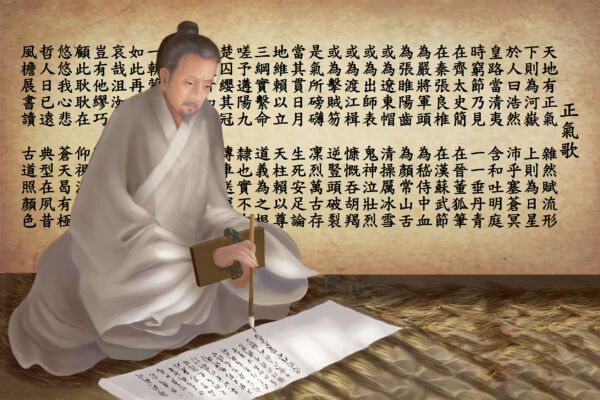 正氣歌
天地有正氣 雜然賦流形
下則為河嶽 上則為日星
於人曰浩然 沛乎塞蒼冥
皇路當清夷 含和吐明庭
時窮節乃見 一一垂丹青
在齊太史簡 在晉董狐筆
在秦張良椎 在漢蘇武節
為嚴將軍頭 為嵇侍中血
為張睢陽齒 為顏常山舌
或為遼東帽 清操厲冰雪
或為出師表 鬼神泣壯烈
或為渡江楫 慷慨吞胡羯
或為擊賊笏 逆豎頭破裂
是氣所磅礡 凜烈萬古存
當其貫日月 生死安足論
地維賴以立 天柱賴以尊
三綱實繫命 道義為之根
嗟予遘陽九 隸也實不
楚囚纓其冠 傳車送
一朝
如此再
哀哉沮
豈有他繆巧
顧此耿耿在 仰視
悠悠我心悲 蒼天曷有極
哲人日已遠 典型在夙昔
風檐展書讀 古道照顏色